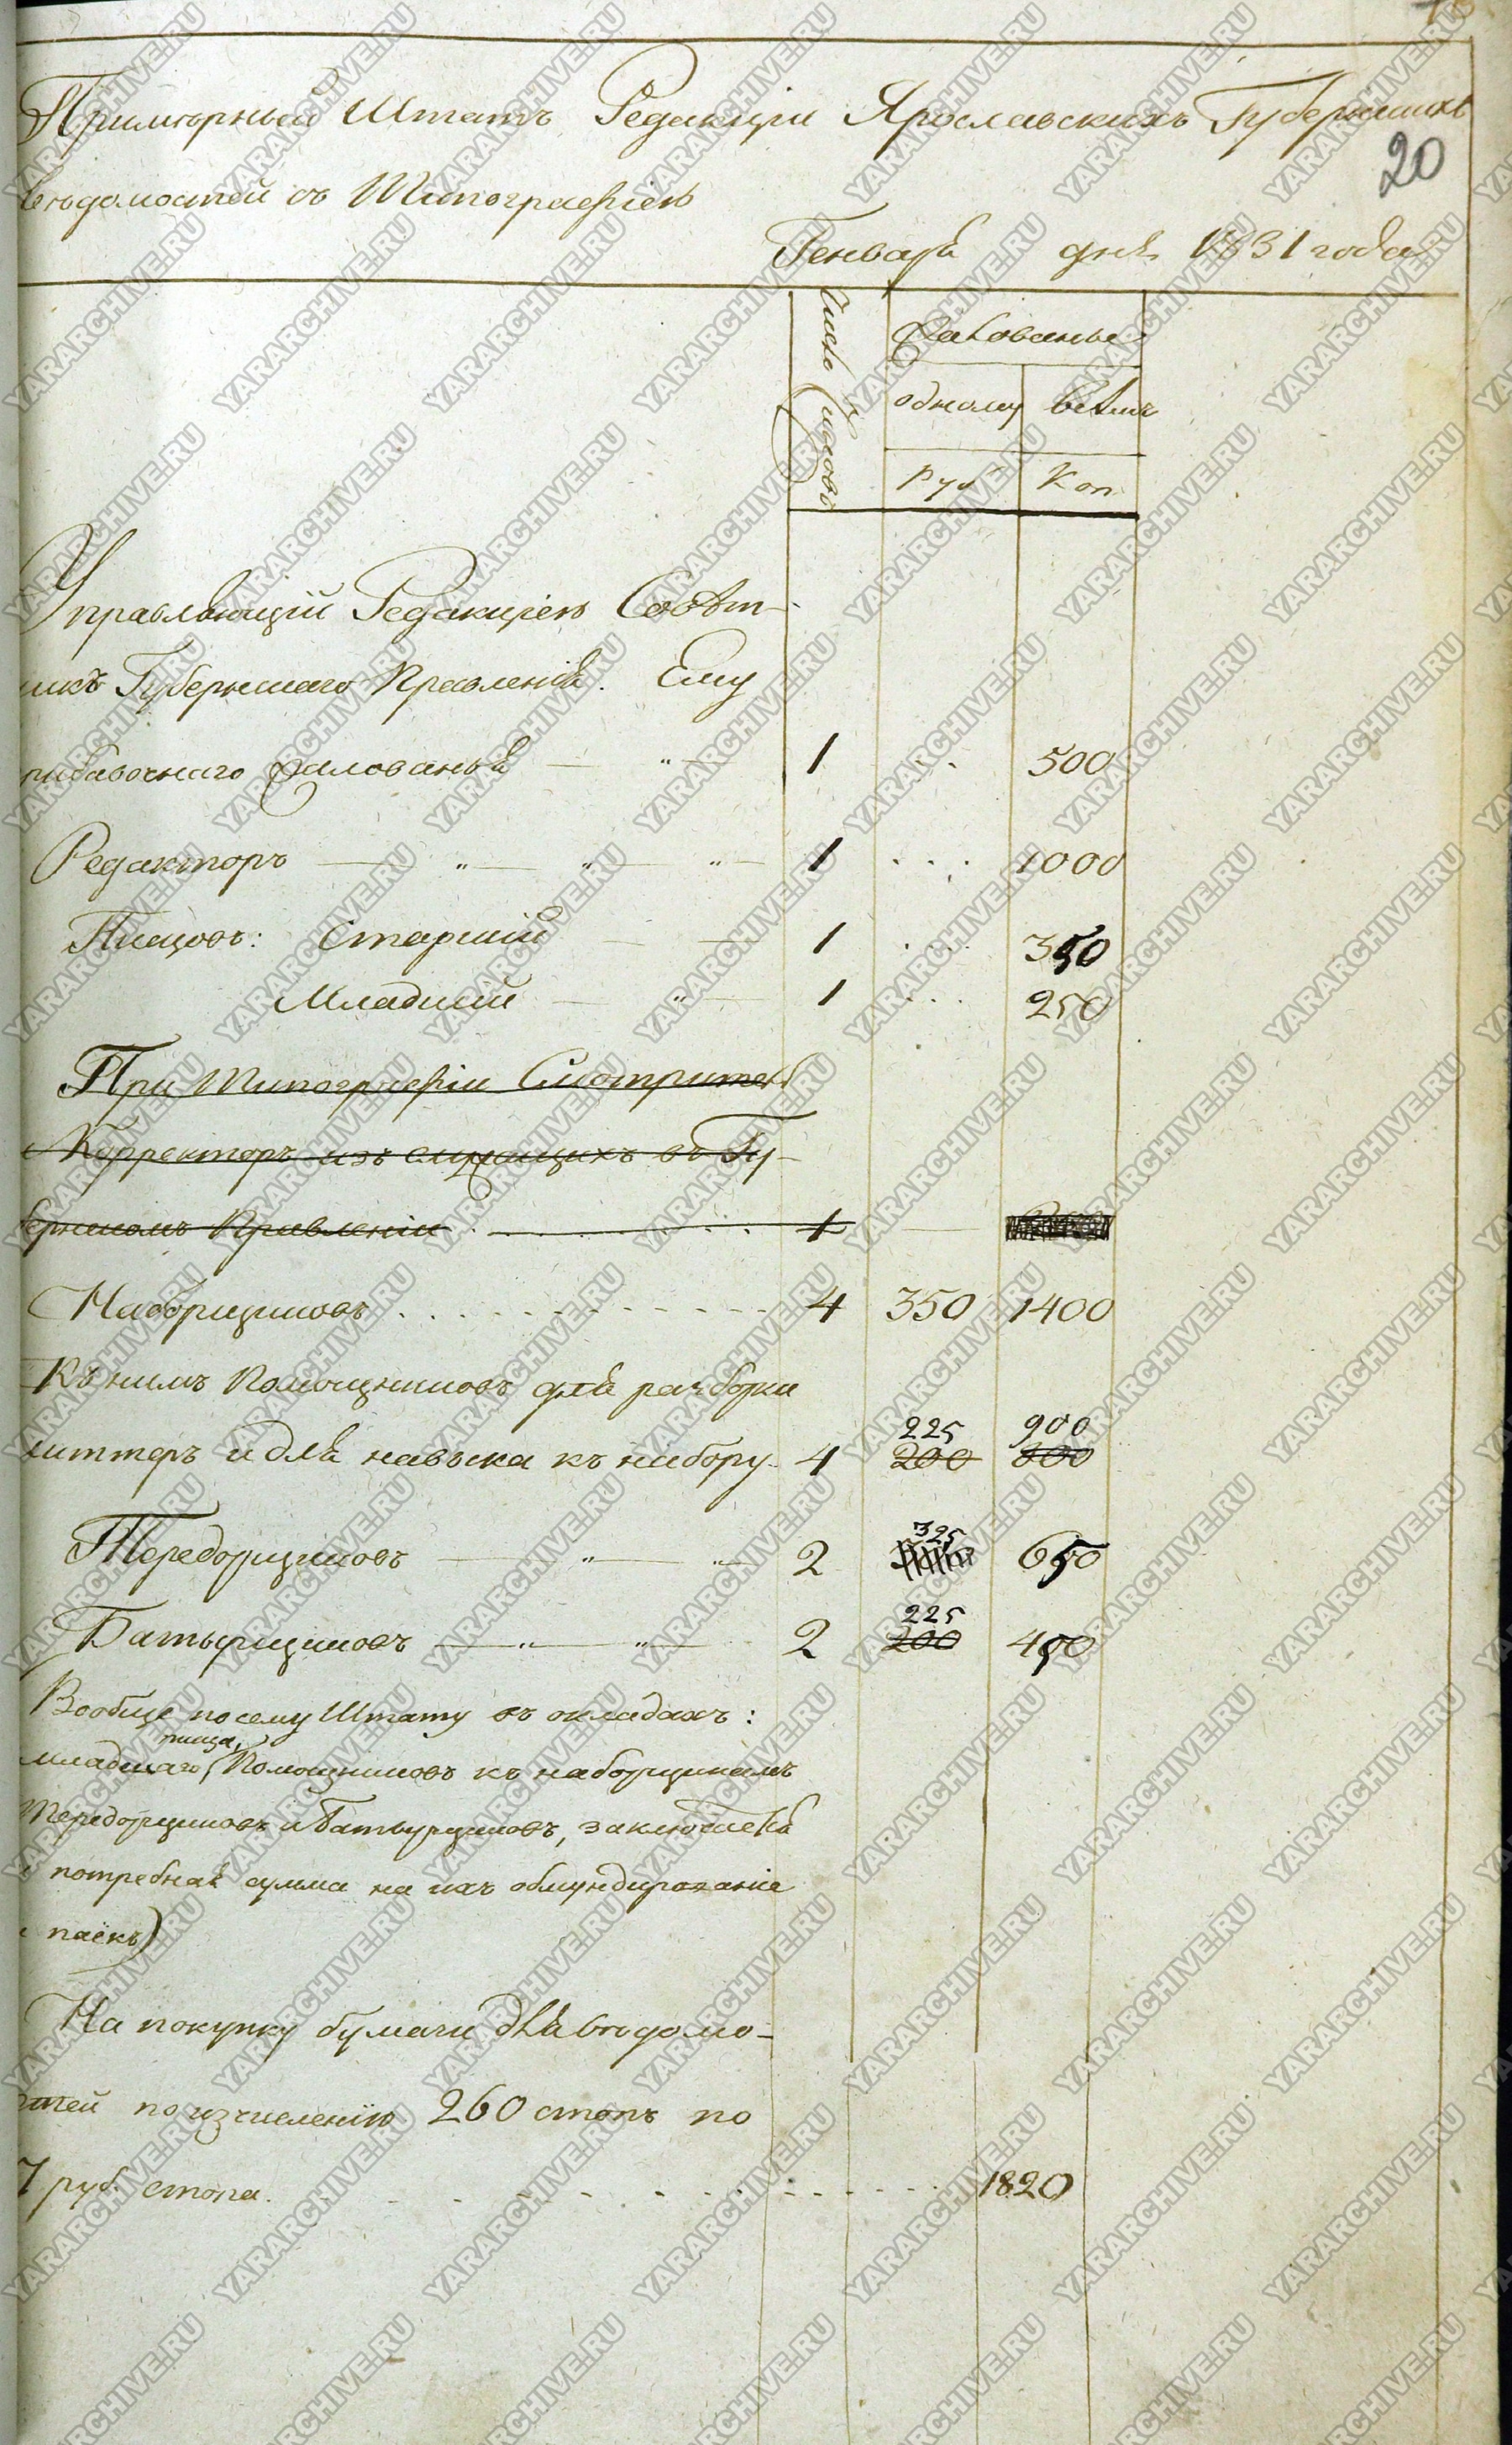 20
Примѣрный Штатъ Редакціи Ярославскихъ Губернскихъ
вѣдомостей съ Типографіею
Генваря дня 1831 года
Число людей
Жалованье
одному всѣмъ
Руб Коп
Управляющій Редакціею Совѣт-
никъ Губернскаго Правленія. Ему
рибавочнаго жалованья — „ — 1 . . 500
Редакторъ — „ — „ — „ — 1 . . . 1000
Писцовъ: Старшій — — 1 . . . 350
Младшій — „ — 1 . . . 250
При Типографіи Смотритель
и Корректоръ изъ служащихъ въ Гу-
бернскомъ Правленіи 1
Наборщиковъ 4 350 1400
Къ нимъ Помощниковъ для разборки
225 900
литтеръ и для навыка къ набору 4 200 800
325
Тередорщиковъ — „ — „ — 2 650
225
Батырщиковъ — „ — „ 2 200 450
Вообще по сему Штату въ окладахъ:
писца,
младшаго (Помощниковъ къ наборщикамъ
Тередорщиковъ и Батырщиковъ, заключается
и потребная сумма на ихъ обмундированіе
и паёкъ)
На покупку бумаги для вѣдомо-
стей по изчисленію 260 стопъ по
7 руб. стопа. 1820
YARARCHIVE.RU